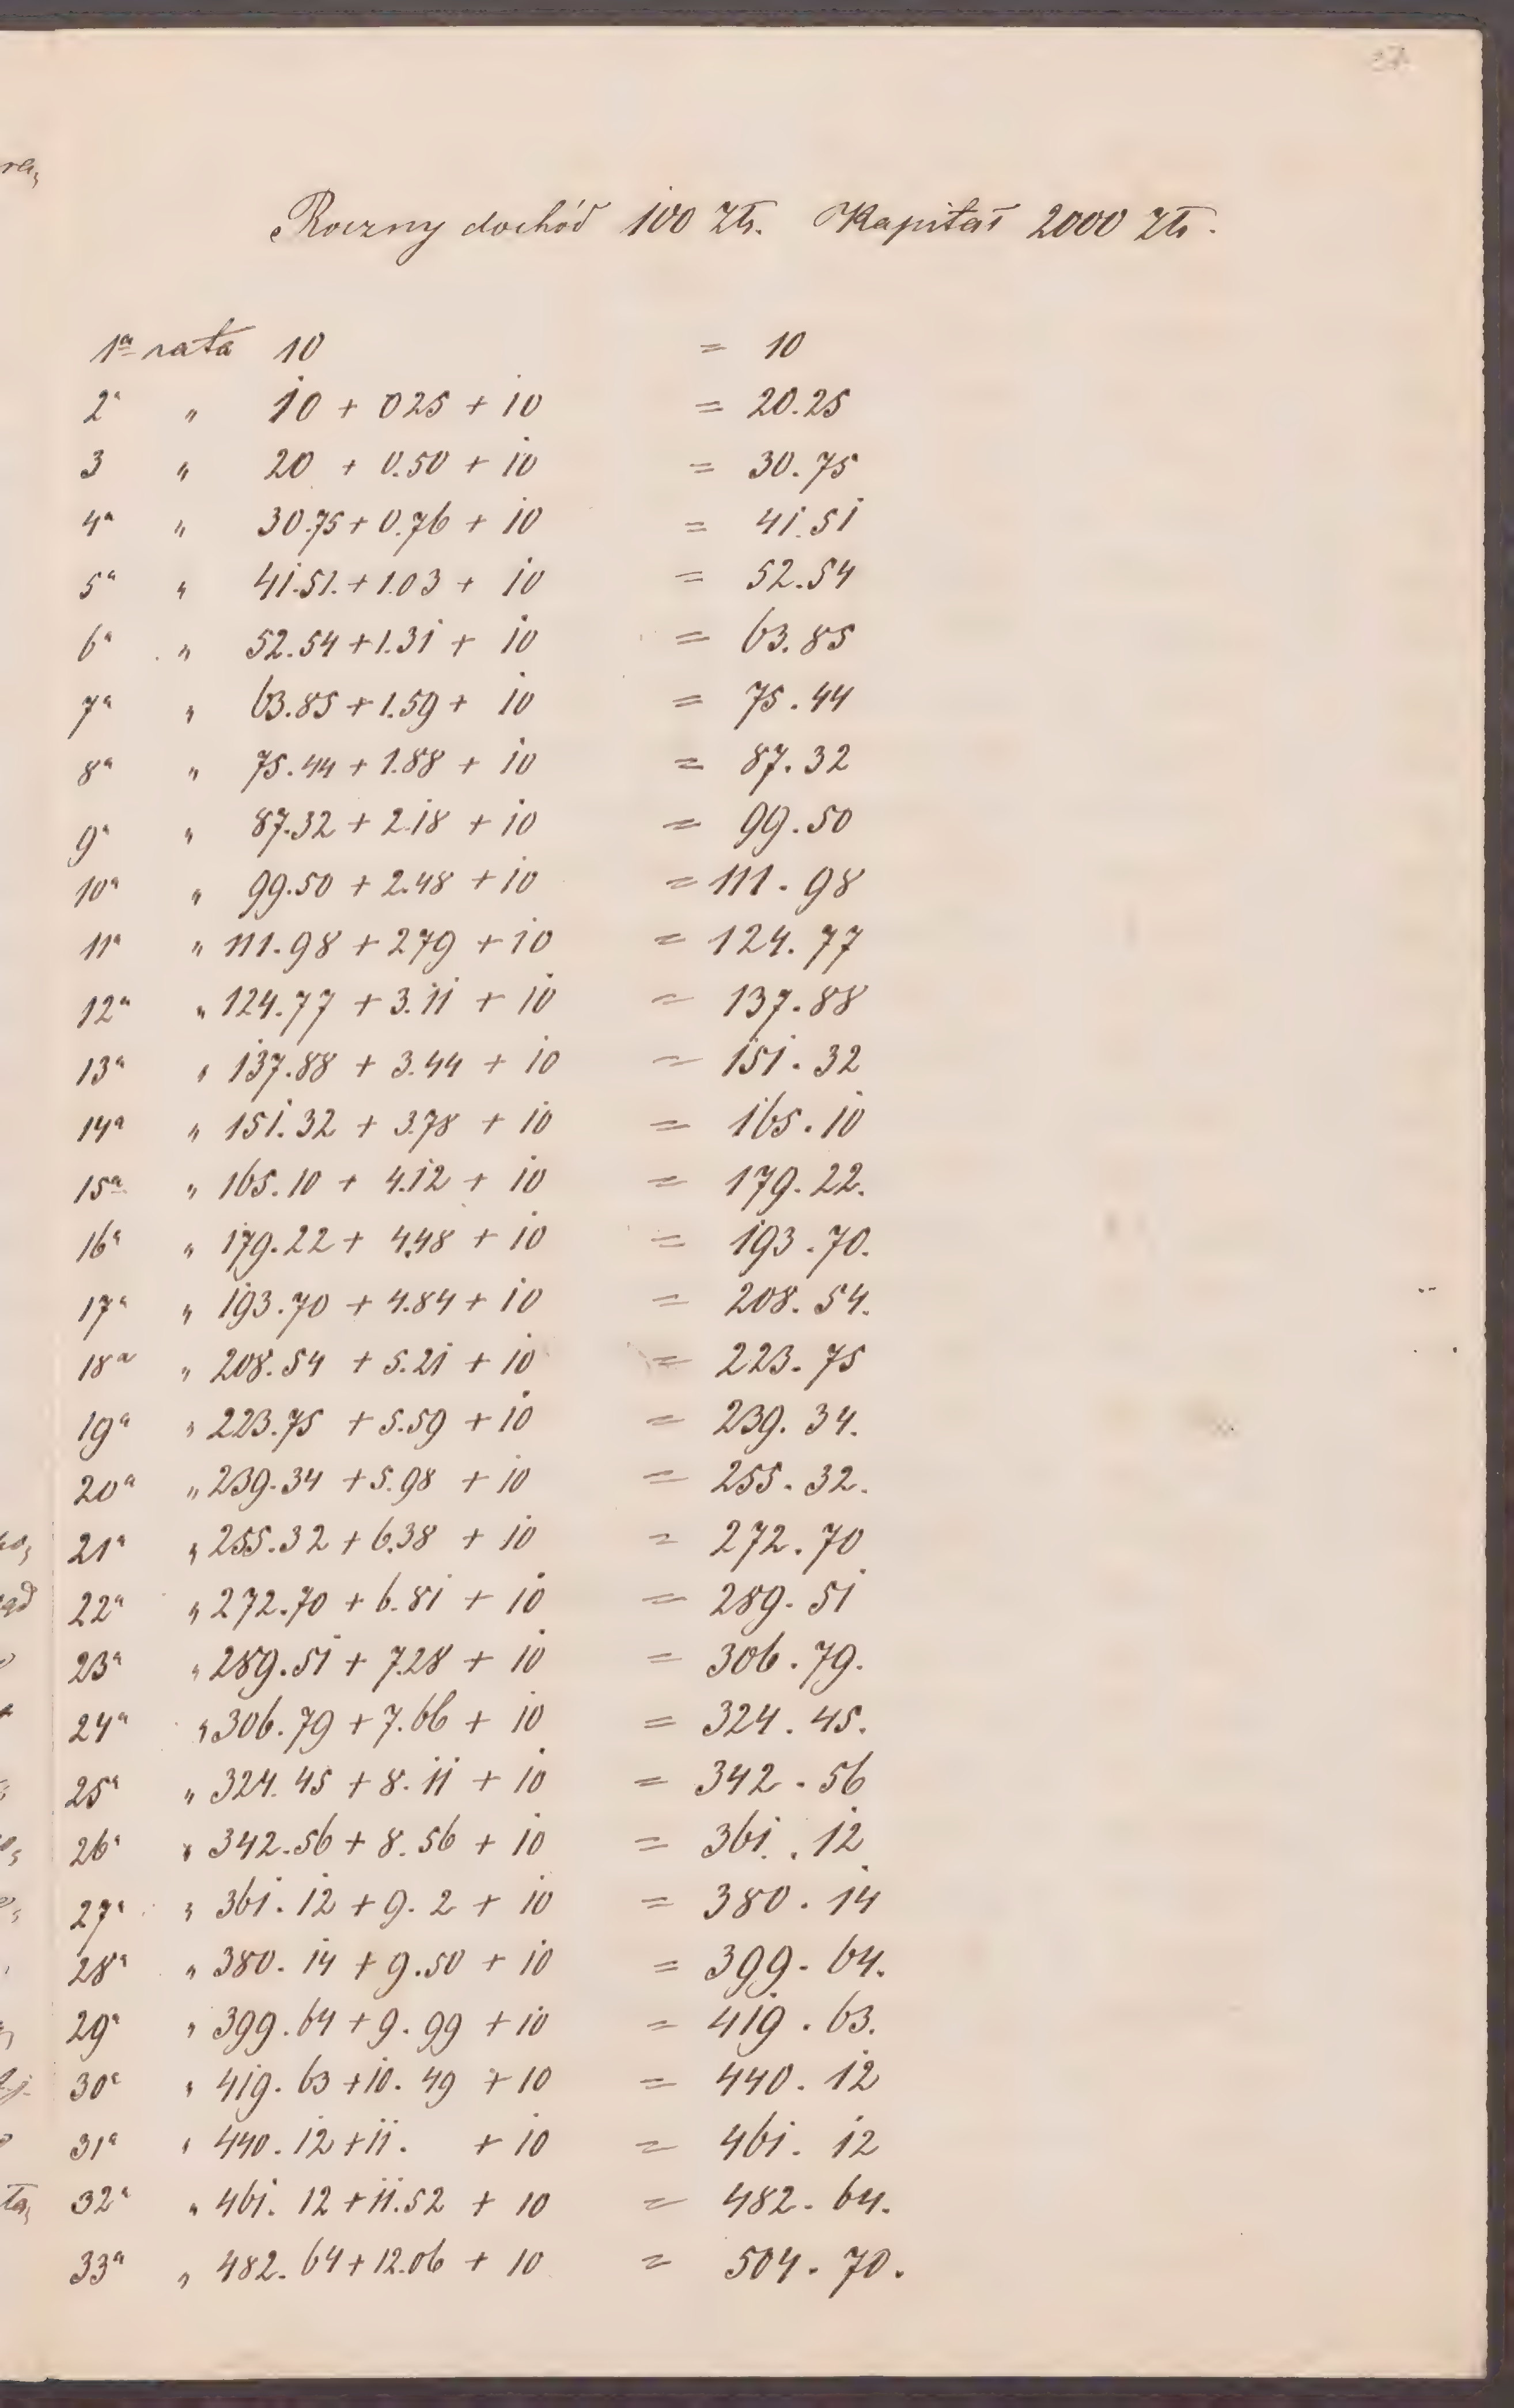 Roczny dochód 100 Złr. Kapitał 2000 Złr.
1ª rata 10 = 10
2ª " 10 + 025 + 10 = 20.25
3 " 20 + 0.50 + 10 = 30.75
4ª " 30.75 + 0.76 + 10 = 41.51
5ª " 41.51. + 1.03 + 10 = 52.54
6ª " 52.54 + 1.31 + 10 = 63.85
7ª " 63.85 + 1.59 + 10 = 75.44
8ª " 75.44 + 1.88 + 10 = 87.32
9ª " 87.32 + 2.18 + 10 = 99.50
10ª " 99.50 + 2.48 + 10 = 111.98
11ª " 111.98 + 279 + 10 = 124.77
12ª " 124.77 + 3.11 + 10 = 137.88
13ª " 137.88 + 3.44 + 10 = 151.32
14ª " 151.32 + 3.78 + 10 = 165.10
15ª " 165.10 + 4.12 + 10 = 179.22.
16ª " 179.22 + 4.48 + 10 = 193.70.
17ª " 193.70 + 4.84 + 10 = 208.54.
18ª " 208.54 + 5.21 + 10 = 223.75
19ª " 223.75 + 5.59 + 10 = 239.34.
20ª " 239.34 + 5.98 + 10 = 255.32.
21ª " 255.32 + 6.38 + 10 = 272.70
22ª " 272.70 + 6.81 + 10 = 289.51
23ª " 289.51 + 7.28 + 10 = 306.79.
24ª " 306.79 + 7.66 + 10 = 324.45.
25ª " 324.45 + 8.11 + 10 = 342.56
26ª " 342.56 + 8.56 + 10 = 361.12
27ª " 361.12 + 9.2 + 10 = 380.14
28ª " 380.14 + 9.50 + 10 = 399.64.
29ª " 399.64 + 9.99 + 10 = 419.63.
30ª " 419.63 + 10.49 + 10 = 440.12
31ª " 440.12 + 11. + 10 = 461.12
32ª " 461.12 + 11.52 + 10 = 482.64.
33ª " 482.64 + 12.06 + 10 = 504.70.